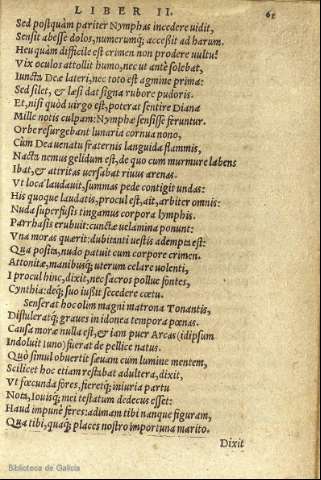 LIBER II. 61
Sed postquàm pariter Nymphas incedere uidit,
Sensit abesse dolos, numerumq́; accessit ad harum.
Heu quàm difficile est crimen non prodere uultu!
Vix oculos attollit humo, nec ut antè solebat,
Iuncta Deæ lateri, nec toto est agmine prima:
Sed silet, & læsi dat signa rubore pudoris.
Et, nisi quòd uirgo est, poterat sentire Diana
Mille notis culpam: Nymphæ sensisse feruntur.
Orbe resurgebant lunaria cornua nono,
Cùm Dea uenatu fraternis languida flammis,
Nacta nemus gelidum est, de quo cum murmure labens
Ibat, & attritas uersabat riuus arenas.
Vt loca laudauit, summas pede contigit undas:
His quoque laudatis, procul est, ait, arbiter omnis:
Nuda superfusis tingamus corpora lymphis.
Parrhasis erubuit: cunctæ uelamina ponunt:
Vna moras quærit: dubitanti uestis adempta est:
Qua posita, nudo patuit cum corpore crimen.
Attonitæ, manibusq́; uterum celare uolenti,
I procul hinc, dixit, nec sacros pollue fontes,
Cynthia: deq́; suo iussit secedere cœtu.
Senserat hoc olim magni matrona Tonantis,
Distuleratq́; graues in idonea tempora pœnas.
Causa moræ nulla est, & iam puer Arcas (id ipsum
Indoluit Iuno) fuerat de pellice natus.
Quò simul obuertit sæuam cum lumine mentem,
Scilicet hoc etiam restabat adultera, dixit,
Vt fœcunda fores, fieretq́; iniuria partu
Nota, Iouisq́; mei testatum dedecus esset:
Haud impunè feres: adimam tibi nanque figuram,
Qua tibi, quaq́; places nostro importuna marito.
Dixit
Biblioteca de Galicia